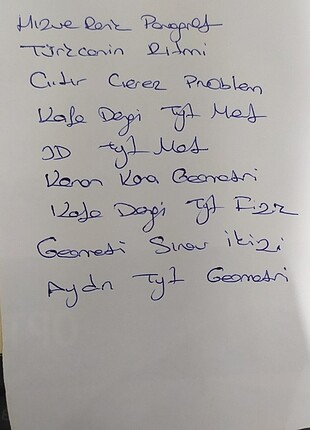 Mizve Reis Paragraf
Türkçenin Ritmi
Çıtır Çerez Problem
Kafa Dengi Tyt Mat
3D Tyt Mat
Kenan Kara Geometri
Kafa Dengi Tyt Fizik
Geometri Sınav ikizi
Aydın Tyt Geometri